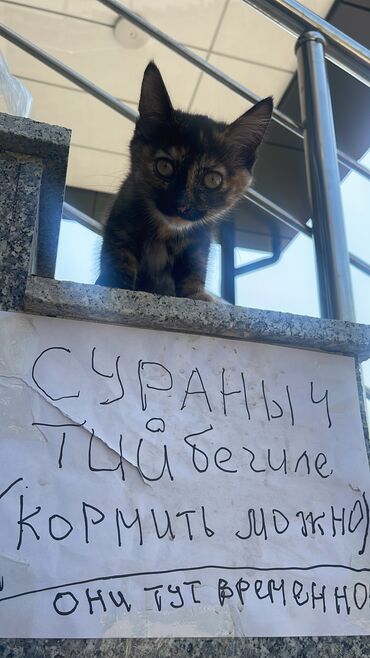 СУРАНЫЧ
ТИЙбегиле
(КОРМИТЬ МОЖНО)
ОНИ ТУТ ВРЕМЕННО